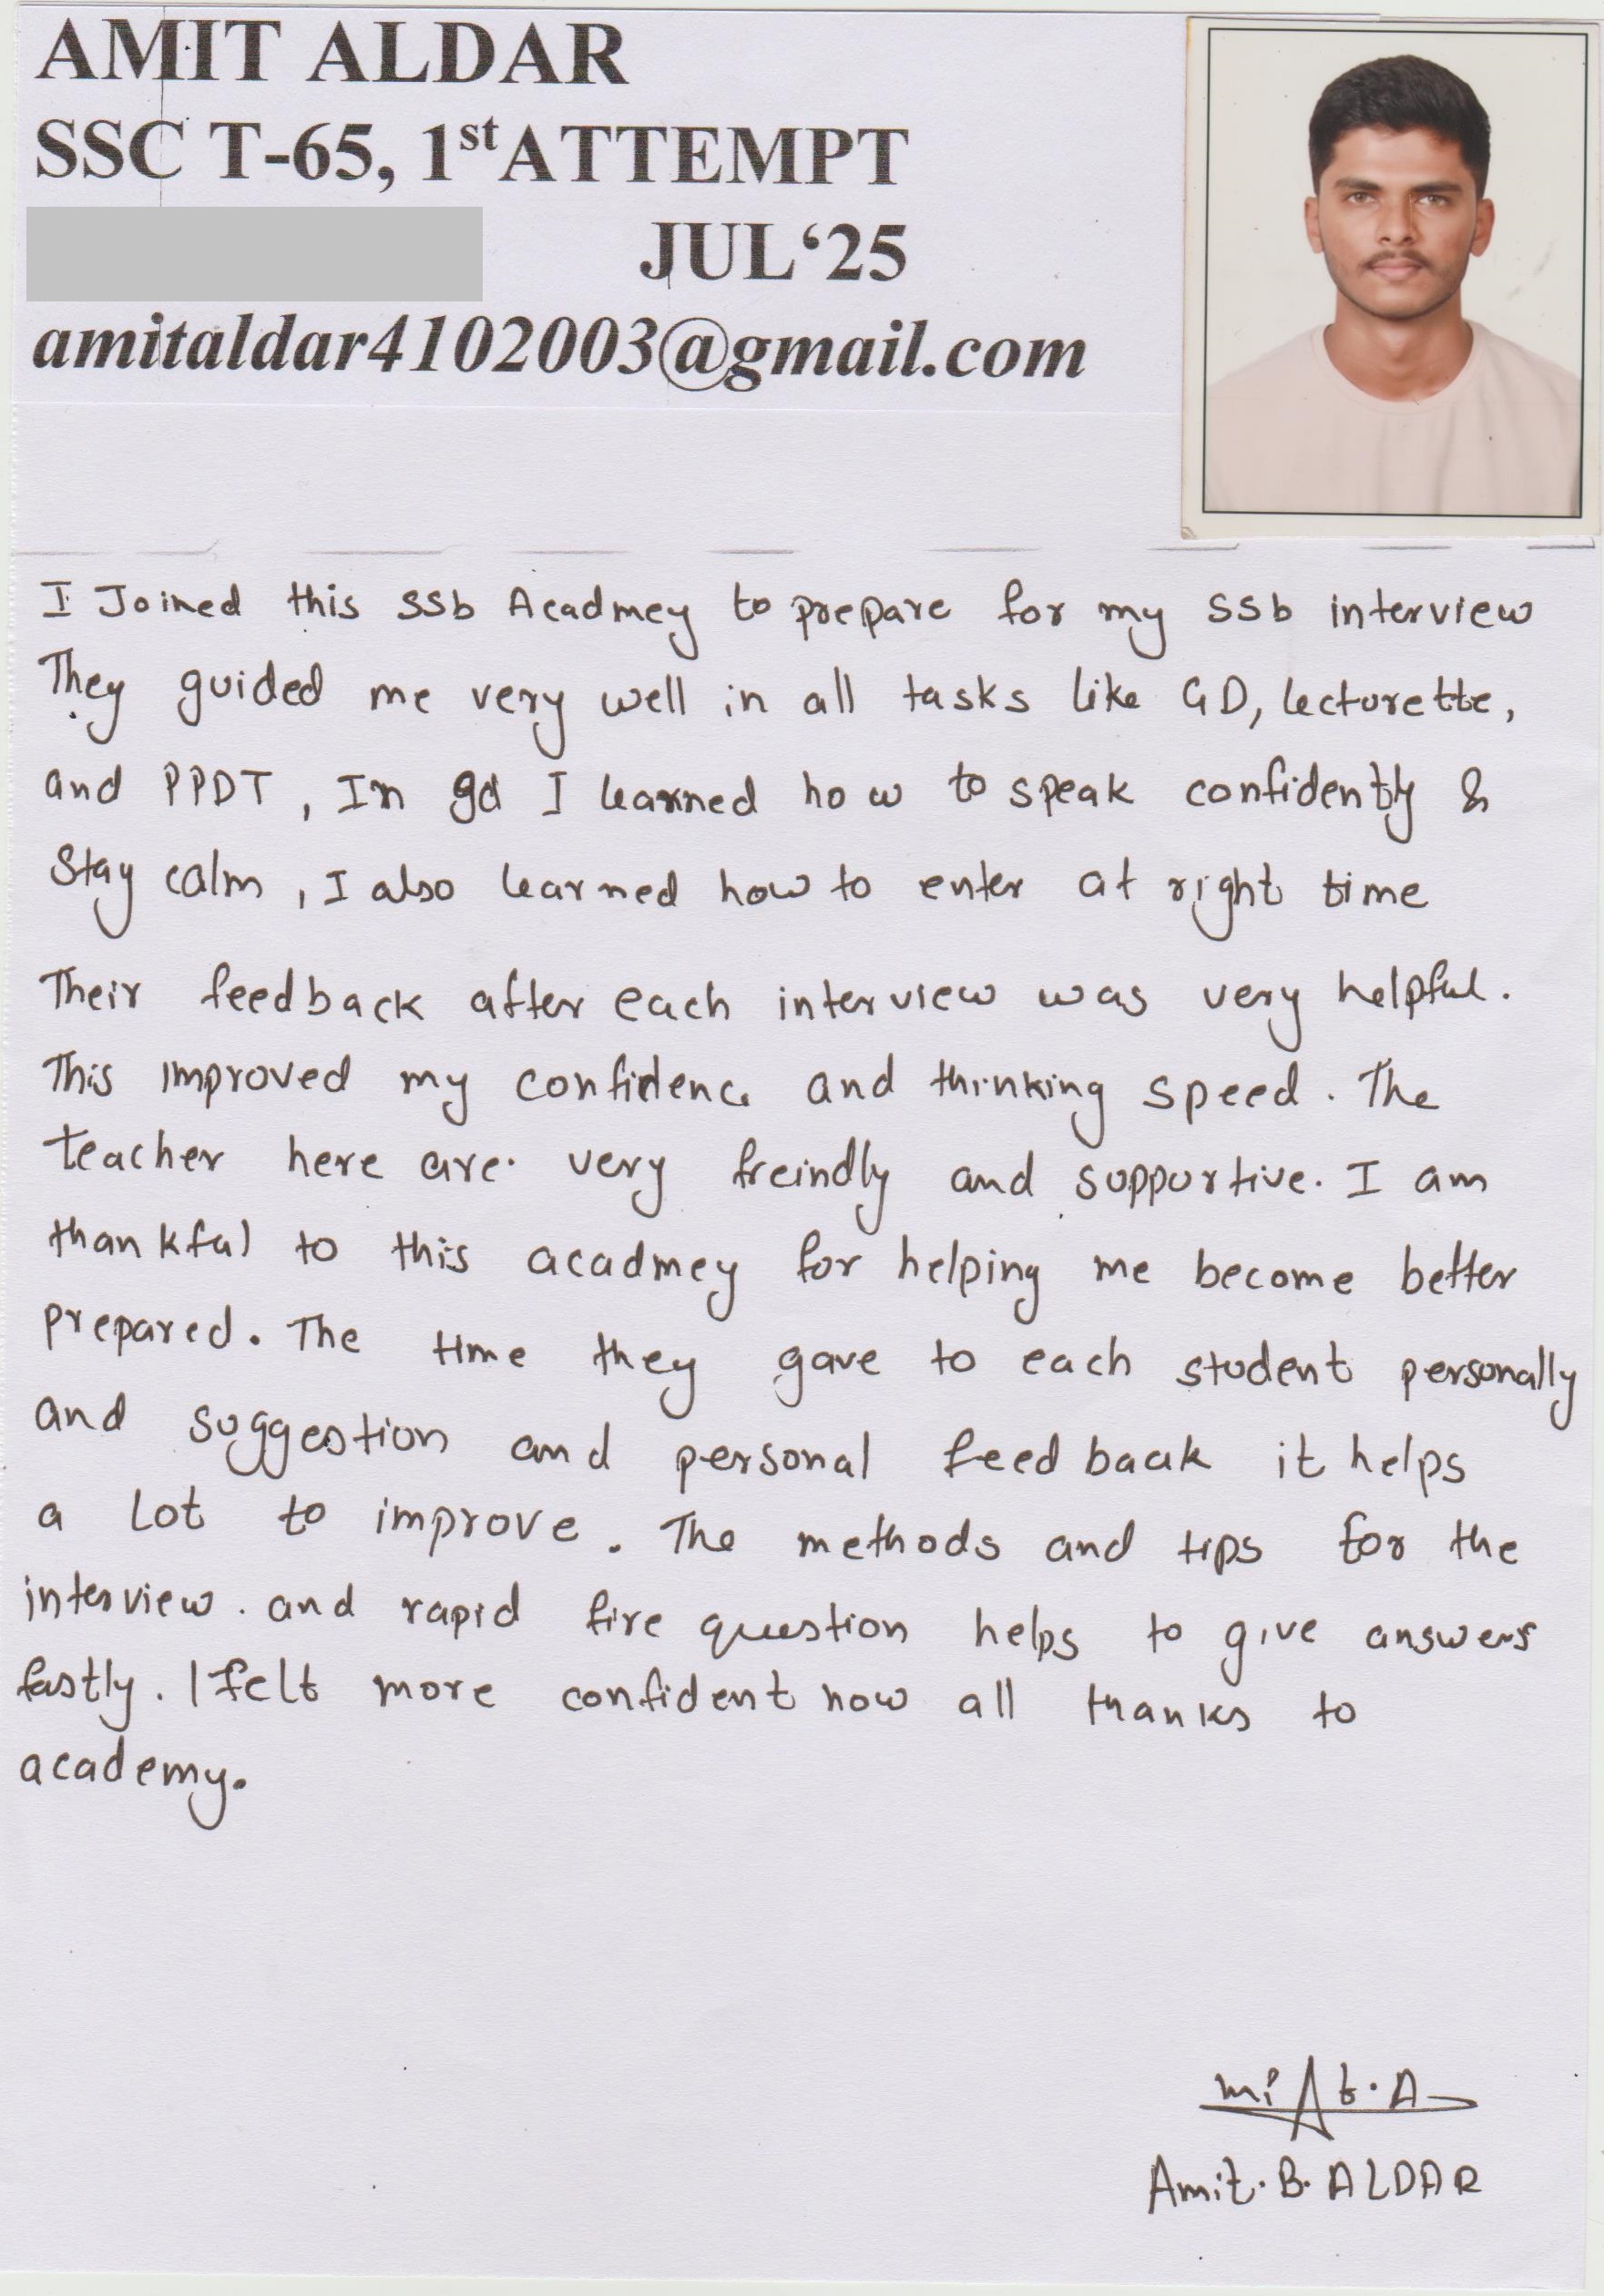 AMIT ALDAR
SSC T-65, 1st ATTEMPT
JUL‘25
amitaldar4102003@gmail.com
I Joined this SSb Acadmey to prepare for my SSb interview
They guided me very well in all tasks like GD, lecturette,
and PPDT, In gd I learned how to speak confidently &
Stay calm, I also learned how to enter at right time
Their feedback after each interview was very helpful.
This improved my confidence and thinking speed. The
teacher here are very freindly and supportive. I am
thankful to this acadmey for helping me become better
prepared. The time they gave to each student personally
and suggestion and personal feedback it helps
a lot to improve. The methods and tips for the
interview. and rapid fire question helps to give answers
fastly. I felt more confident now all thanks to
academy.
Amit. B. ALDAR